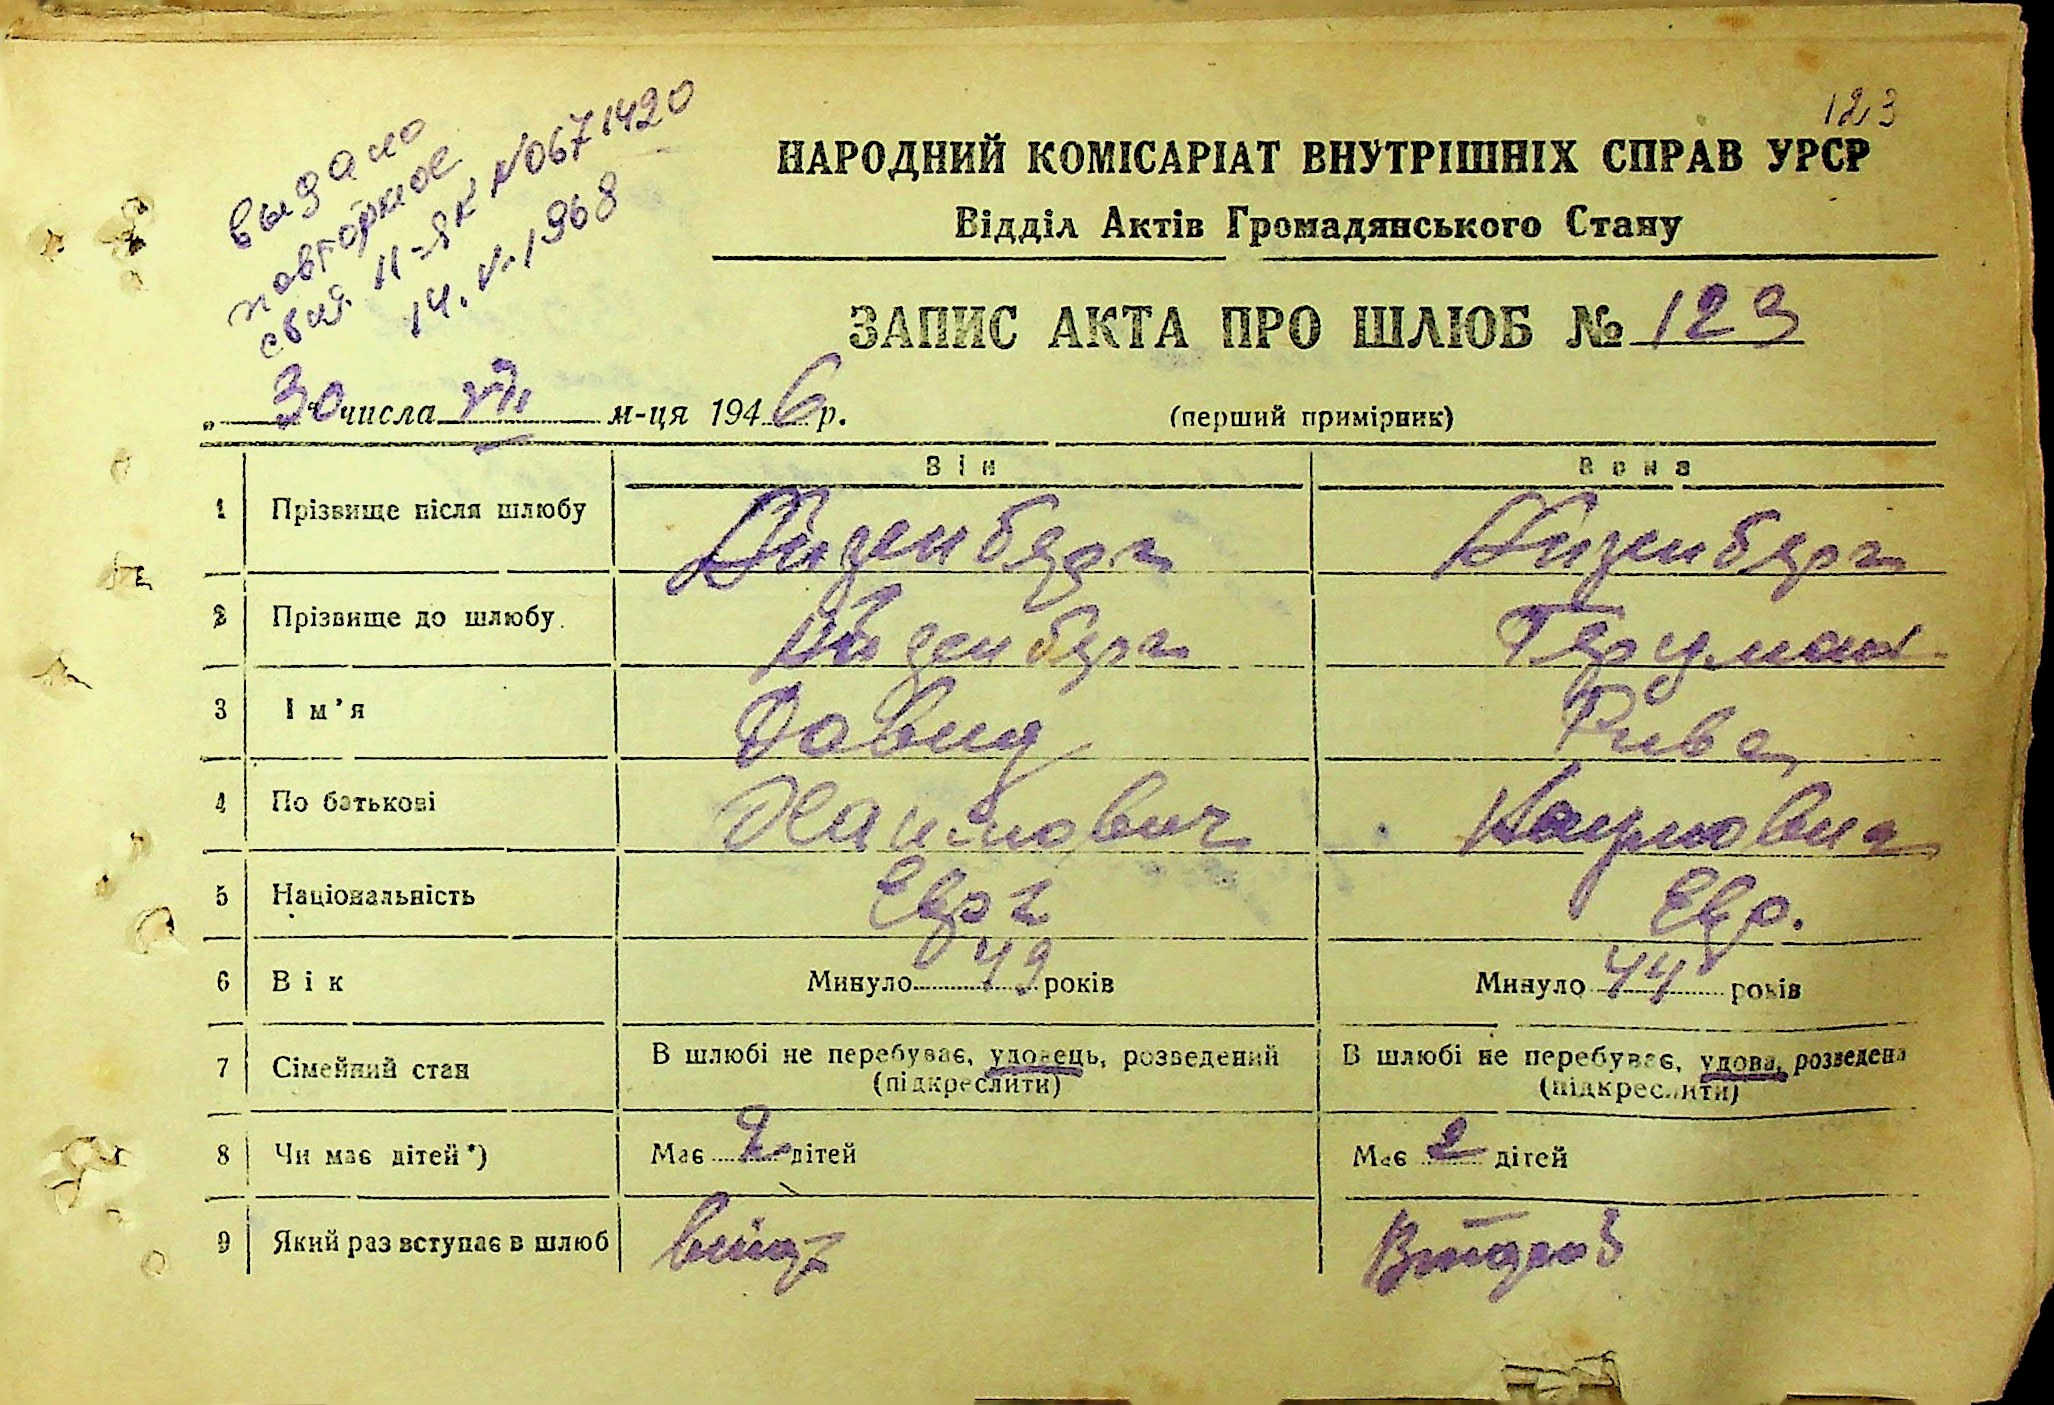 123
выдано
повторное
свид. II-ЯК №0671420
14.V.1968
НАРОДНИЙ КОМІСАРІАТ ВНУТРІШНІХ СПРАВ УРСР
Відділ Актів Громадянського Стану
ЗАПИС АКТА ПРО ШЛЮБ № 123
„30“ числа VII м-ця 1946 р. (перший примірник)
Він Вона
1 Прізвище після шлюбу Айзенберг Айзенберг
2 Прізвище до шлюбу Айзенберг
3 Ім’я Давид Рива
4 По батькові Хаимович Наумовна
5 Національність Евр Евр.
6 Вік Минуло 49 років Минуло 44 років
7 Сімейний стан В шлюбі не перебуває, удовець, розведений В шлюбі не перебуває, удова, розведена
(підкреслити) (підкреслити)
8 Чи має дітей*) Має 2 дітей Має 2 дітей
9 Який раз вступає в шлюб